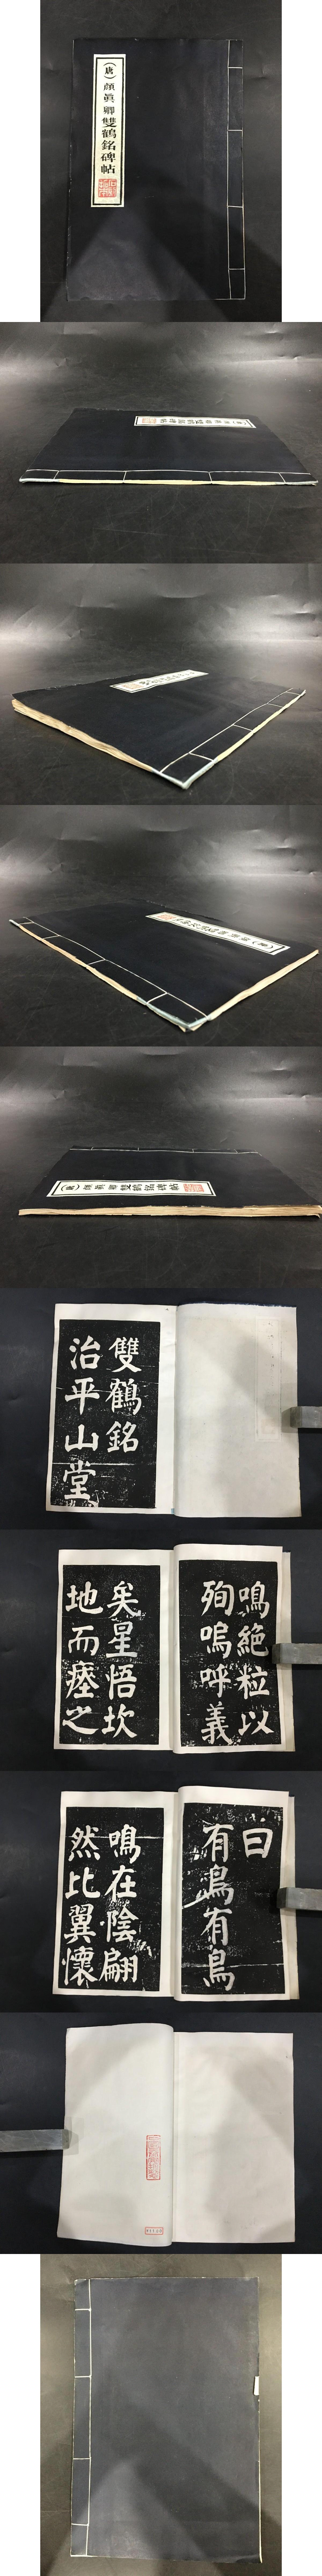 （唐）顏真卿雙鶴銘碑帖
雙鶴銘
治平山堂
鳴絕粒以
殉嗚呼義
矣星悟坎
地而瘞之
曰
有鳥有鳥
鳴在陰翩
然比翼懷